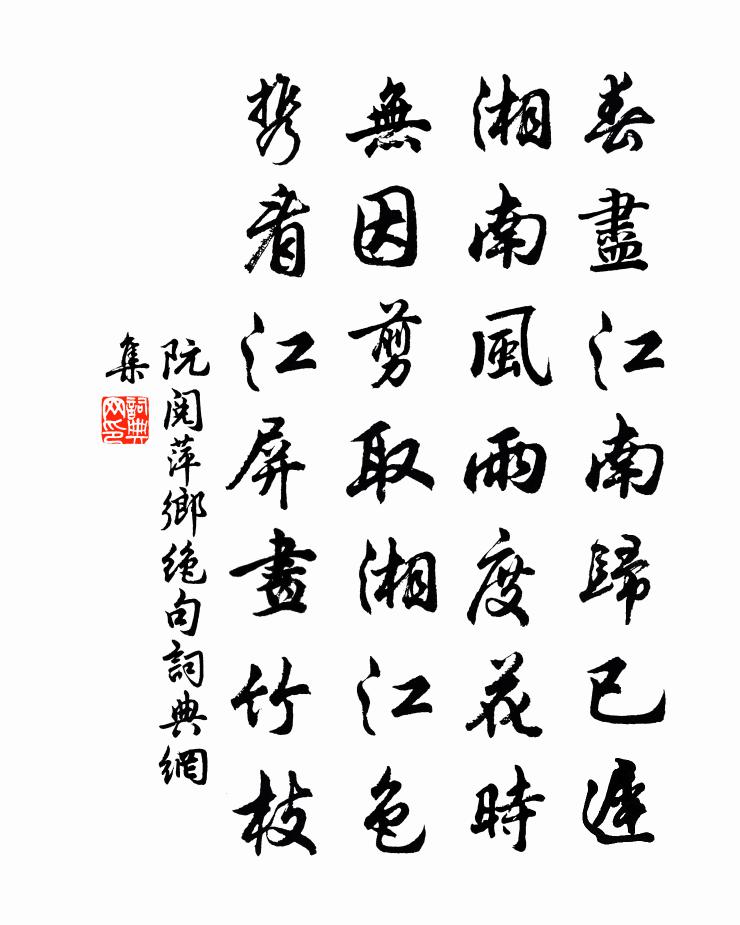 春盡江南歸已遲
湘南風雨度花時
無因剪取湘江色
携看江屏畫竹枝
阮閱萍鄉绝句詞典網
集
詞典
网印